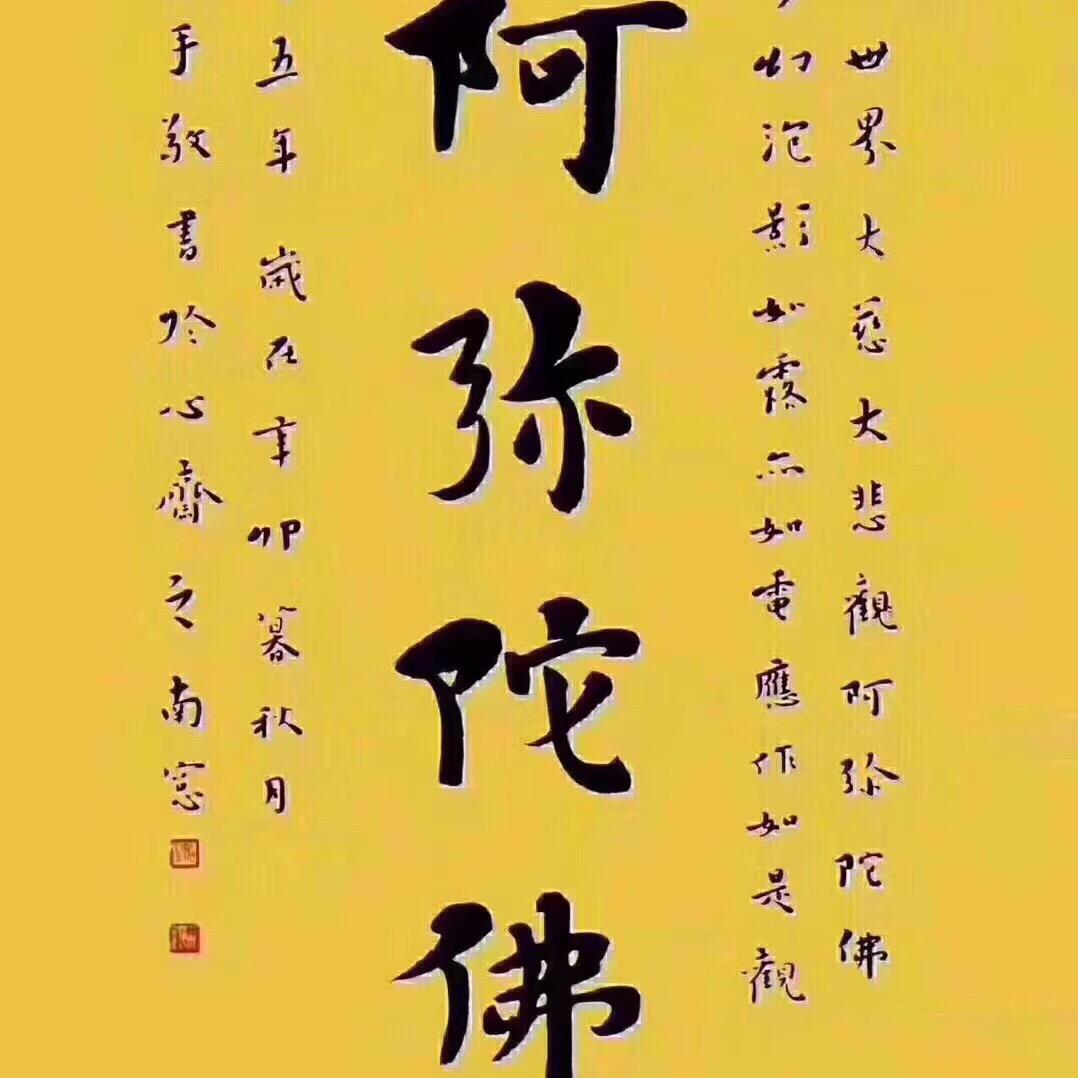 世界大慈大悲觀阿弥陀佛
幻泡影如露亦如電應作如是觀
阿弥陀佛
五年 歲在辛卯暮秋月
手敬書於心齋之南窓